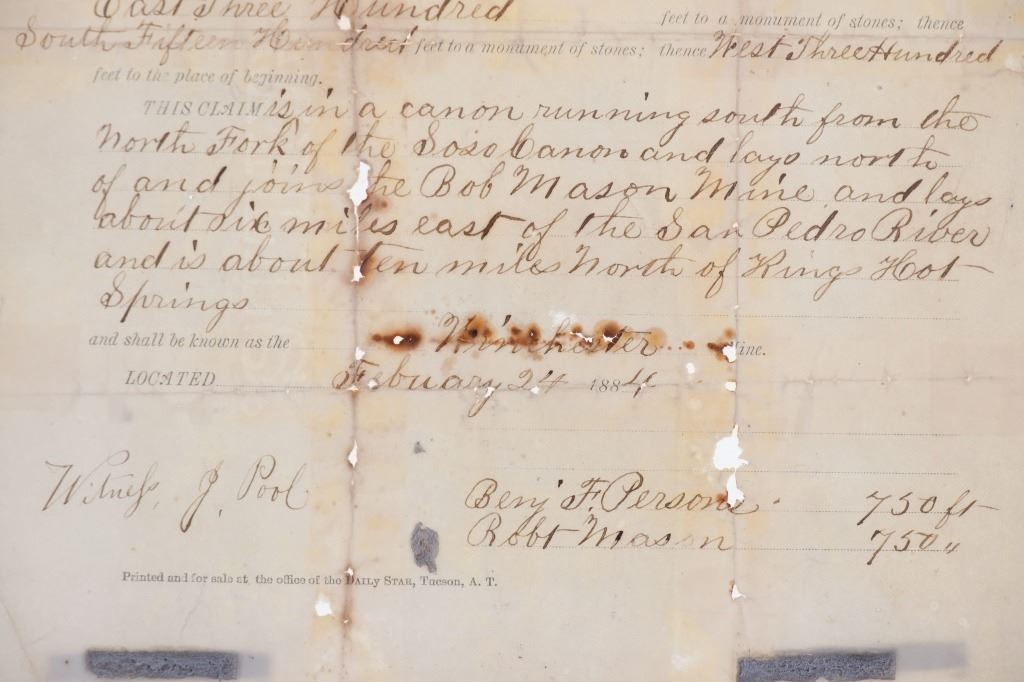 East Three Hundred feet to a monument of stones; thence
South Fifteen Hundred feet to a monument of stones; thence West Three Hundred
feet to the place of beginning.
THIS CLAIM is in a canon running south from the
North Fork of the Soso Canon and lays north
of and joins the Bob Mason Mine and lays
about six miles east of the San Pedro River
and is about ten miles North of Kings Hot
Springs
and shall be known as the Winchester Mine.
LOCATED Febuary 24 1884
Witness, J. Pool
Benj F. Persons 750 ft
Robt Mason 750 "
Printed and for sale at the office of the DAILY STAR, Tucson, A. T.